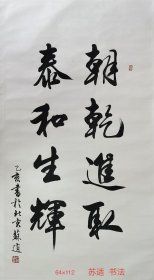 朝乾進取
泰和生輝
乙亥書於北京蘇适
64×112 苏适 书法